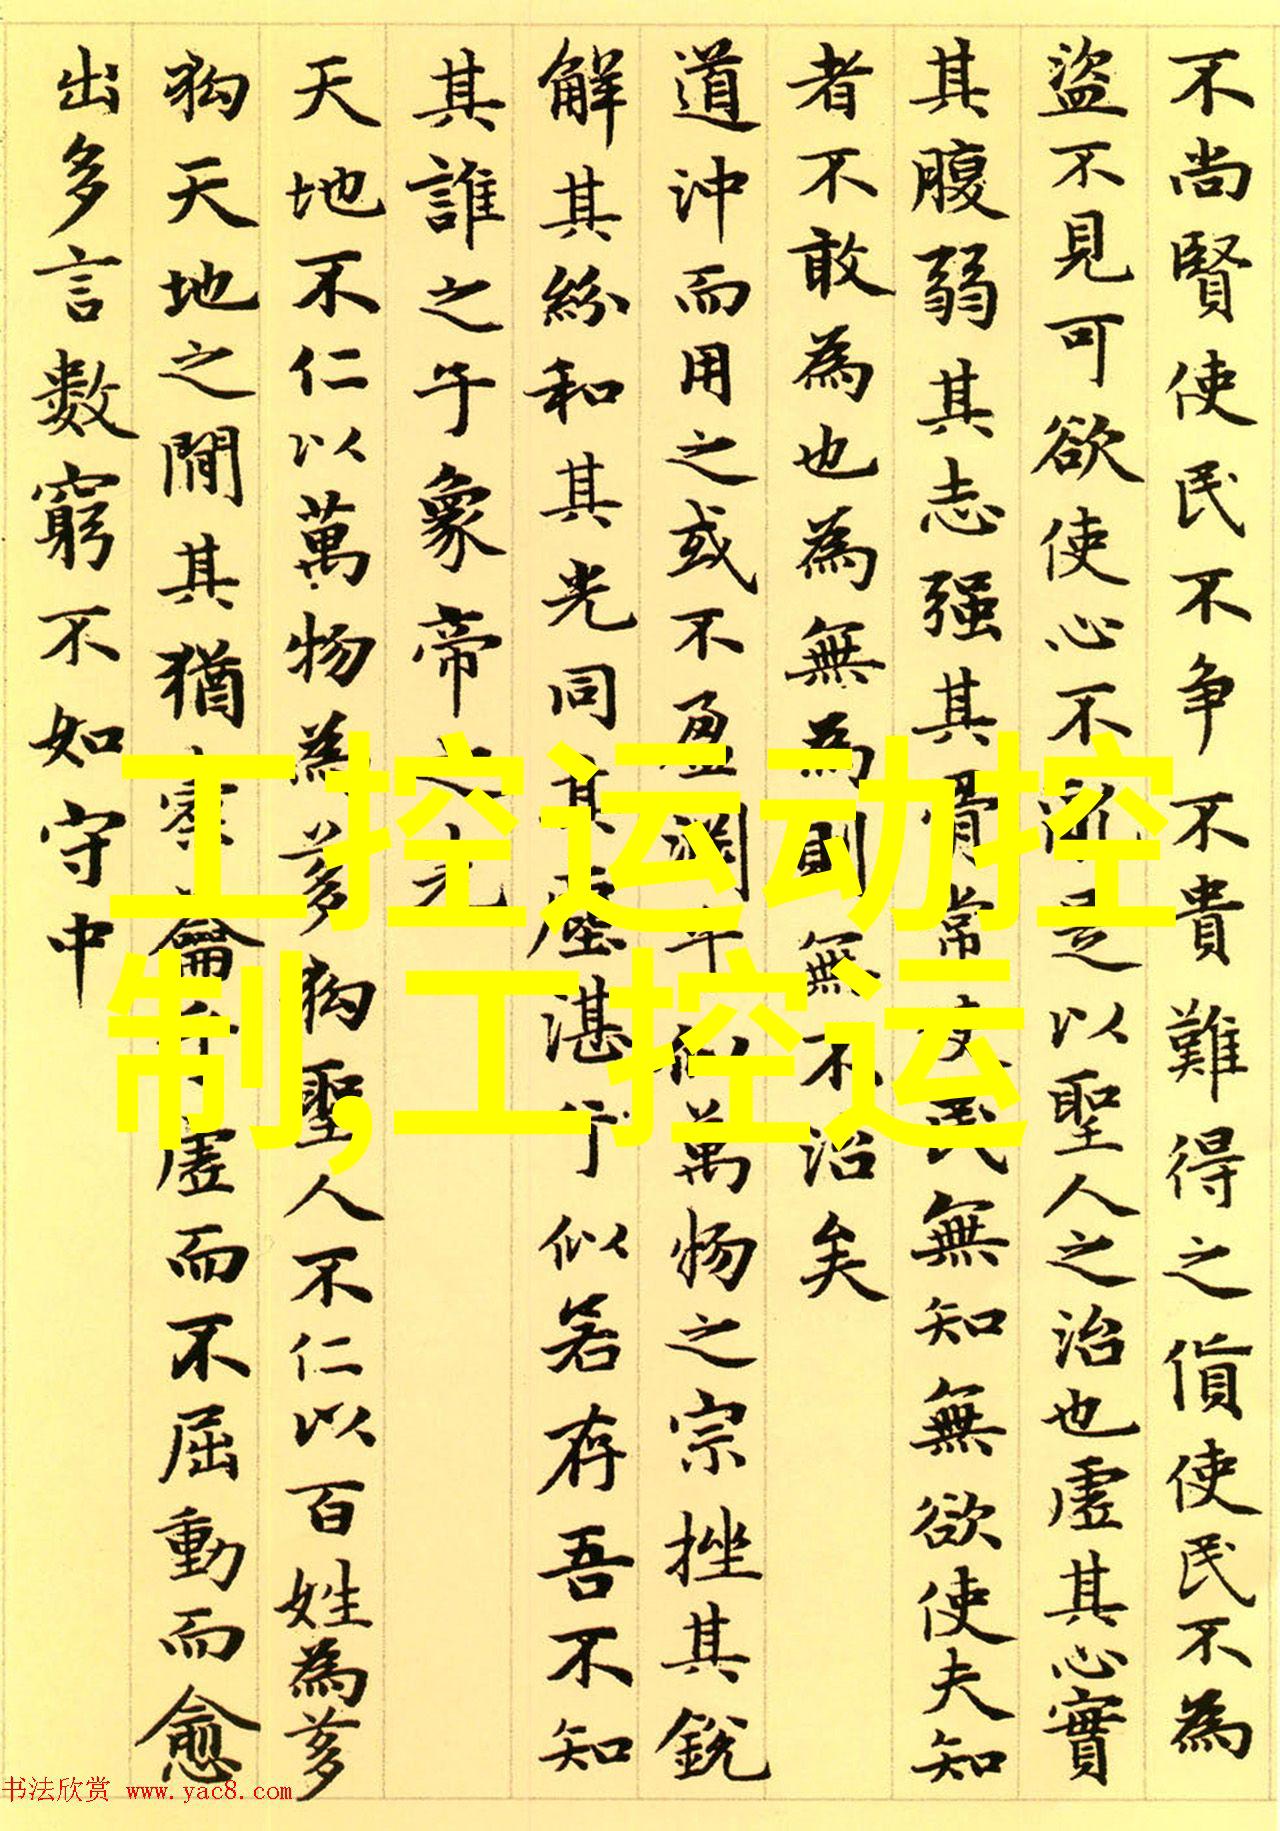 不尚賢使民不争不貴難得之貨使民不為
盜不見可欲使心不亂是以聖人之治也虛其心實
其腹弱其志强其骨常使民無知無欲使夫知
者不敢為也為無為則無不治矣
道沖而用之或不盈淵乎似萬物之宗挫其銳
解其紛和其光同其塵湛兮似若存吾不知
其誰之子象帝之先
天地不仁以萬物為芻狗聖人不仁以百姓為芻
狗天地之間其猶橐籥乎虛而不屈動而愈
出多言數窮不如守中
工控运动控
制,工控运
书法欣赏 www.yac8.com